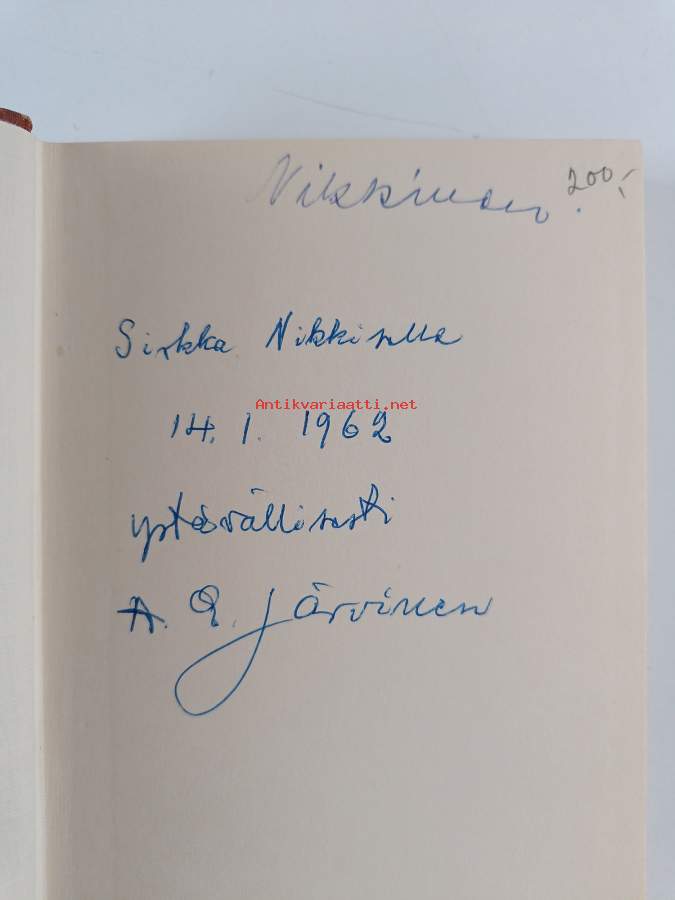 Nikkinen. 200,-
Sirkka Nikkiselle
Antikvariaatti.net
14.1. 1962
ystävällisesti
A. E. Järvinen